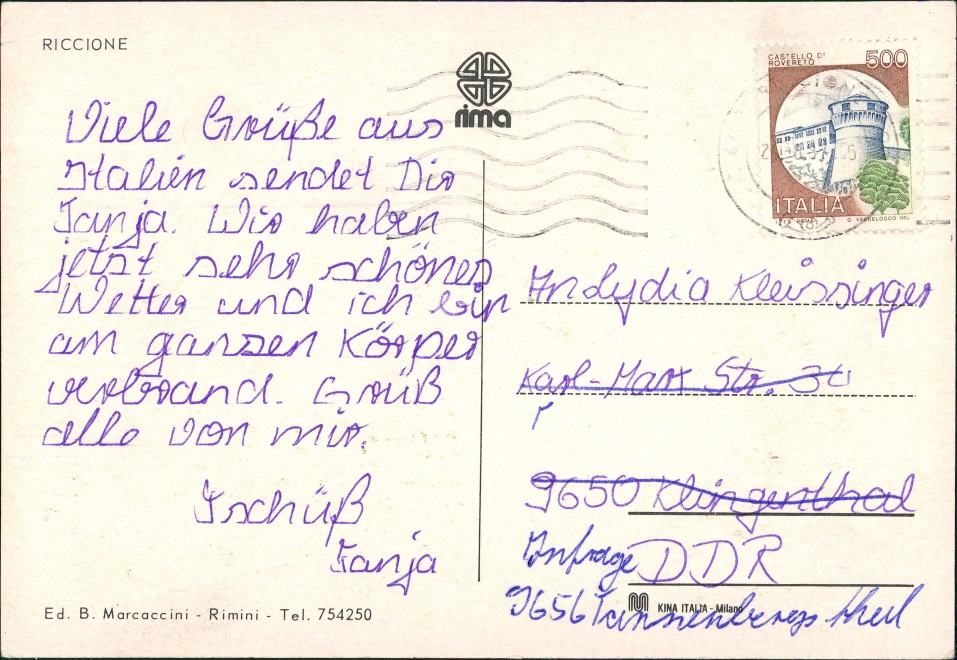 RICCIONE
rima
CASTELLO DI
ROVERETO
500
ITALIA
Viele Grüße aus
Italien sendet Dir
Tanja. Wir haben
jetzt sehr schönes
Wetter und ich bin
am ganzen Körper
verbrand. Grüß
alle von mir.
Tschüß
Tanja
An Lydia Kleissinger
Karl-Marx Str.
9650 Klingenthal
DDR
9656 Tannenbergsthal
Ed. B. Marcaccini - Rimini - Tel. 754250
KINA ITALIA - Milano